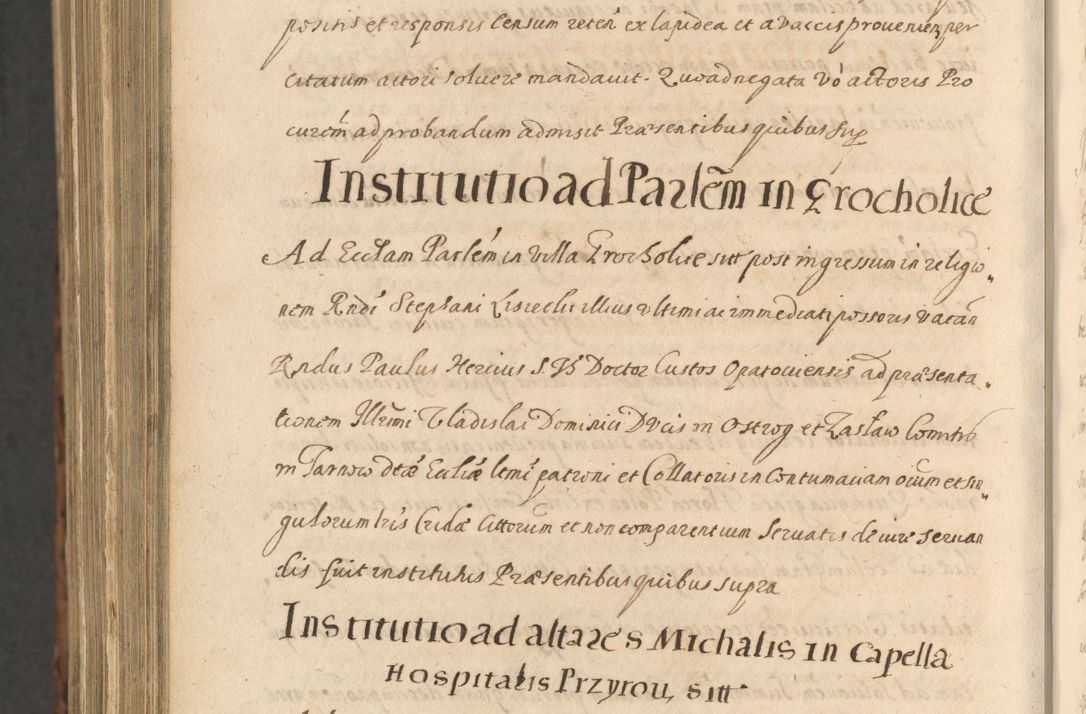 positis et responsis Censum reten̄ ex lapidea et a vaccis provenien per
citatum actori solvere mandavit. Quoad negata vó actoris Pro
curem̄ ad probandum admisit Præsentibus quibus sup̄
Institutio ad Parlem̄ in Grocholice
Ad Ecclam Parlem̄ in Villa Grocholice sitt post ingressum in religio„
nem Rndi Stephani Lisiecki illius ultimi ac immediati possoris vacan̄
Rndus Paulus Hercius S. Th Doctor Custos Opatoviensis ad præsenta„
tionem Illmi Vladislai Dominici Ducis in Ostrog et Zasław Comitis
in Tarnow dtæ Eccliæ ltmi patroni et Collatoris in Contumaciam oium et sin„
gulorum lris Cridæ Cittorum et non comparentium Servatis de iure servan
dis fuit institutus Præsentibus quibus supra
Institutio ad altare S Michalis in Capella
Hospitalis Przyrou, sitt